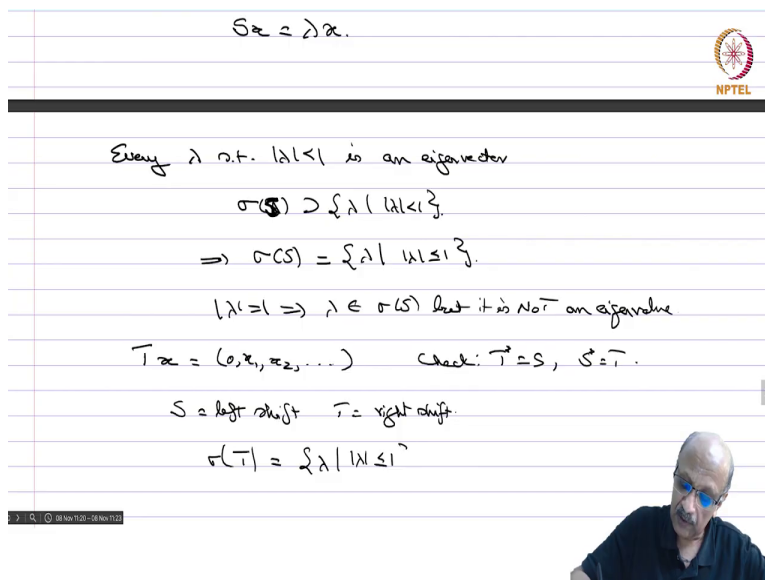 Sx = λx.
NPTEL
Every λ s.t. |λ|<1 is an eigenvector
σ(S) ⊃ {λ | |λ|<1}.
⇒ σ(S) = {λ | |λ| ≤ 1}.
|λ|=1 ⇒ λ ∈ σ(S) but it is NOT an eigenvalue
Tx = (0, x₁, x₂, ...) Check: T* = S, S* = T.
S = left shift T = right shift.
σ(T) = {λ | |λ| ≤ 1
08 Nov 11:20 - 08 Nov 11:23